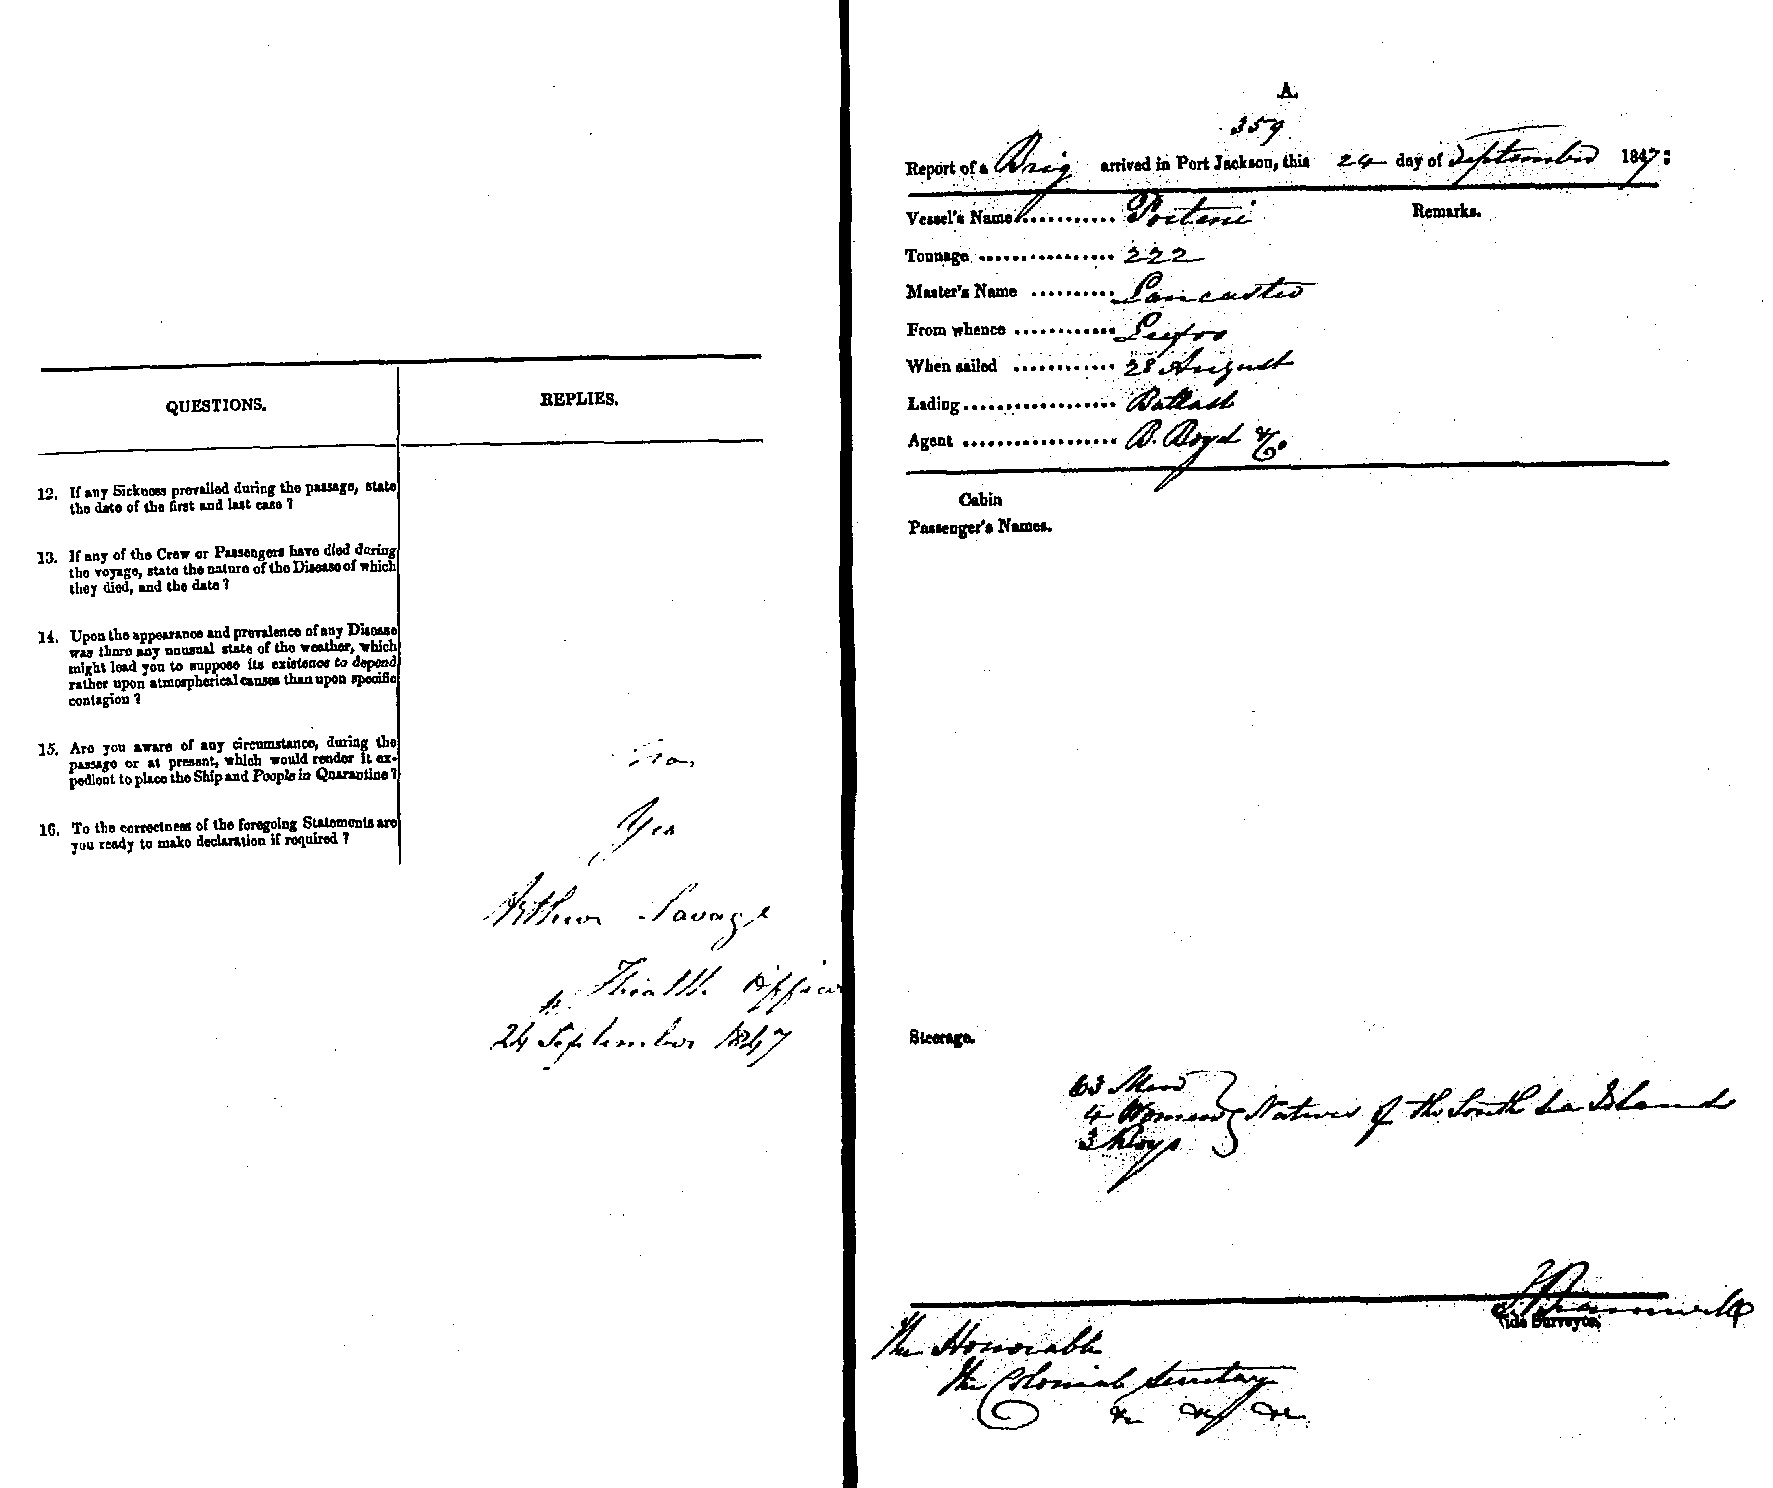 QUESTIONS.
REPLIES.
12. If any Sickness prevailed during the passage, state
the date of the first and last case ?
13. If any of the Crew or Passengers have died during
the voyage, state the nature of the Disease of which
they died, and the date ?
14. Upon the appearance and prevalence of any Disease
was there any unusual state of the weather, which
might lead you to suppose its existence to depend
rather upon atmospherical causes than upon specific
contagion ?
15. Are you aware of any circumstance, during the
passage or at present, which would render it ex-
pedient to place the Ship and People in Quarantine ?
16. To the correctness of the foregoing Statements are
you ready to make declaration if required ?
Yes
Arthur Savage
Health Officer
24 September 1847
A.
359
Report of a Brig arrived in Port Jackson, this 24 day of September 1847:
Vessel's Name Porteni
Remarks.
Tonnage 222
Master's Name Lancaster
From whence
When sailed 28 August
Lading Ballast
Agent B. Boyd & Co.
Cabin
Passenger's Names.
Steerage.
63 Men
4 Women Natives of the South Sea Islands
3 Boys
Tide Surveyor,
The Honorable
The Colonial Secretary
&c &c &c